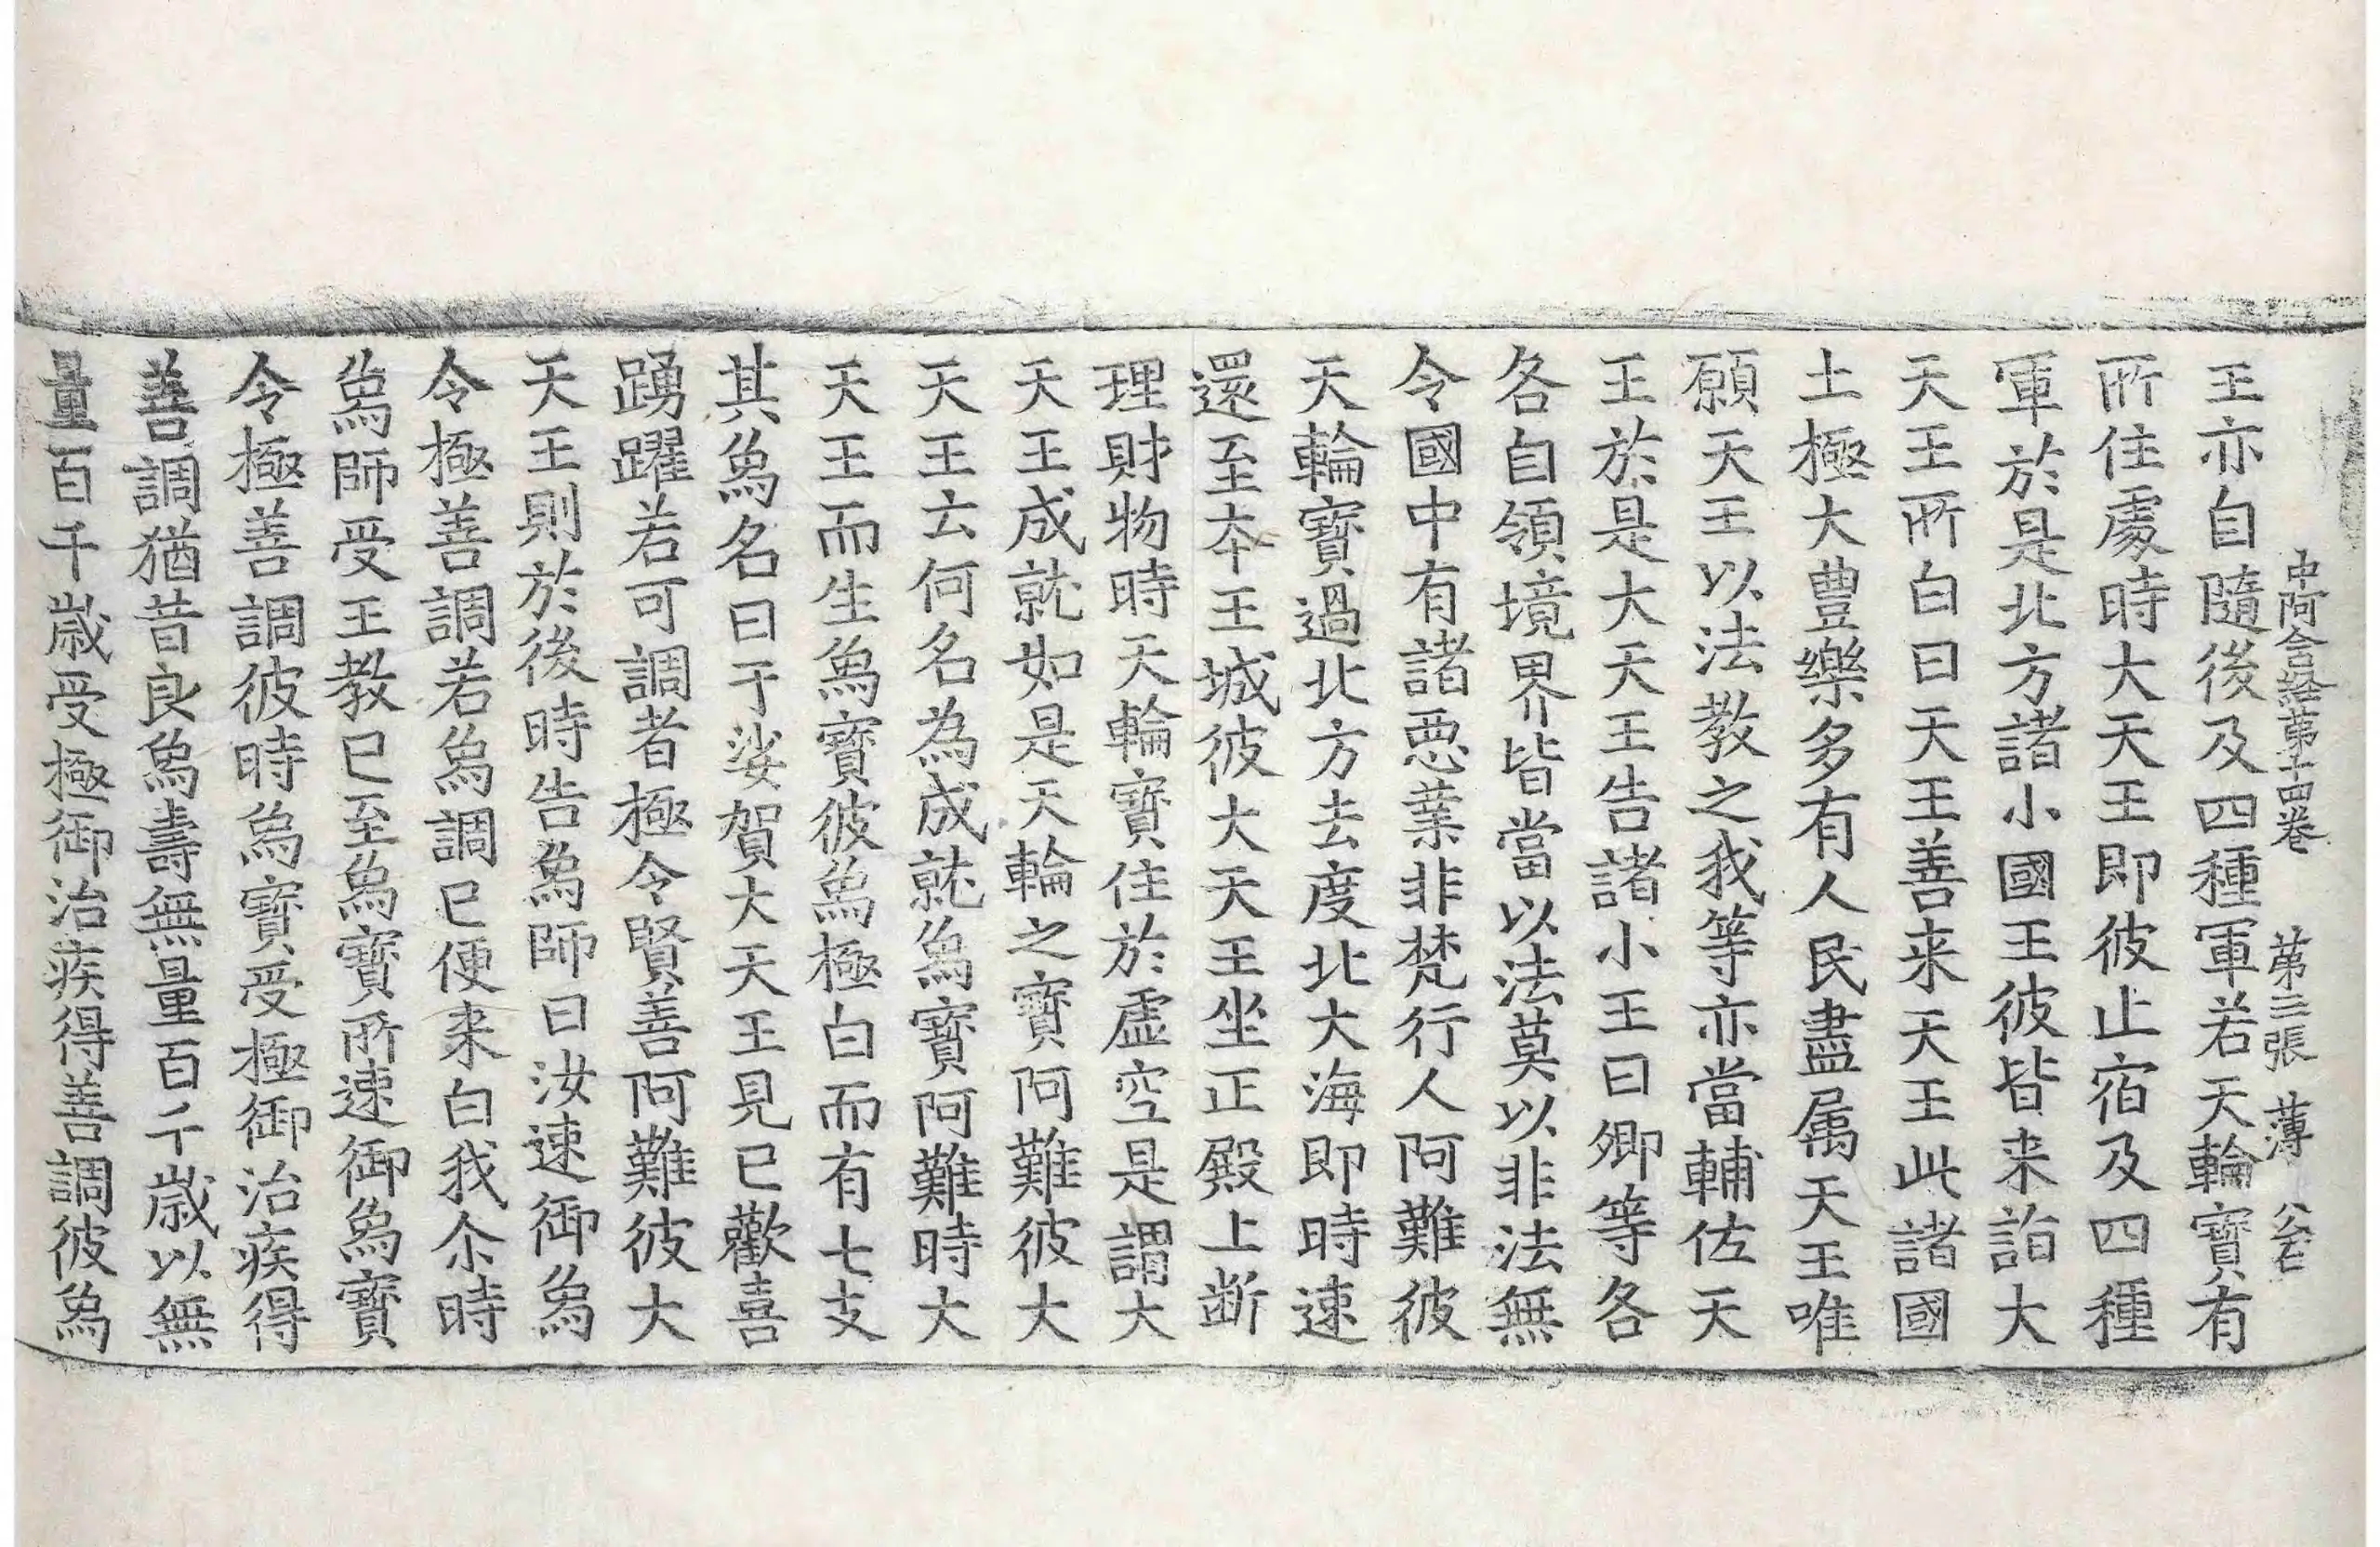 中阿含経苐十四巻 苐三張 薄
王亦自隨後及四種軍若天輪寶有
所住處時大天王即彼止宿及四種
軍於是北方諸小國王彼皆来詣大
天王所白曰天王善来天王此諸國
土極大豊樂多有人民盡属天王唯
願天王以法教之我等亦當輔佐天
王於是大天王告諸小王曰卿等各
各自領境界皆當以法莫以非法無
令國中有諸惡業非梵行人阿難彼
天輪寶過北方去度北大海即時速
還至夲王城彼大天王坐正殿上断
理財物時天輪寶住於虛空是謂大
天王成就如是天輪之寶阿難彼大
天王云何名為成就象寶阿難時大
天王而生象寶彼象極白而有七支
其象名曰于娑賀大天王見已歡喜
踴躍若可調者極令賢善阿難彼大
天王則於後時告象師曰汝速御象
令極善調若象調已便来白我尒時
象師受王教已至象寶所速御象寶
令極善調彼時象寶受極御治疾得
善調猶昔良象壽無量百千歳以無
量百千歳受極御治疾得善調彼象